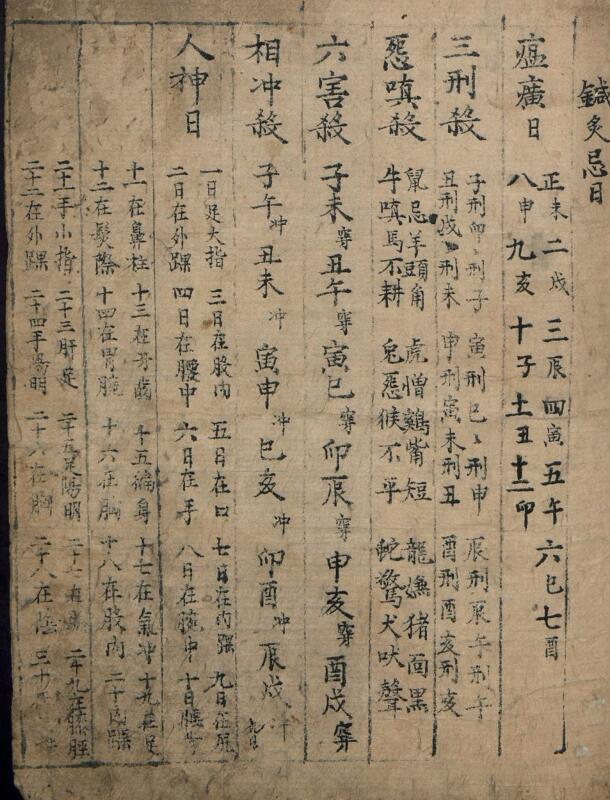 鍼灸忌日
瘟㾮日 正未 二戌 三辰 四寅 五午 六巳 七酉
八申 九亥 十子 土丑 十二卯
三刑殺 子刑卯〻刑子 寅刑巳〻刑申 辰刑辰午刑午
丑刑戌〻刑未 申刑寅未刑丑 酉刑酉亥刑亥
惡嗔殺 鼠忌羊頭角 虎憎鷄觜短 龍嫌猪面黑
牛嗔馬不耕 兎惡猴不平 蛇驚犬吠聲
六害殺 子未穿 丑午穿 寅巳穿 卯辰穿 申亥穿 酉戌穿
相冲殺 子午冲 丑未冲 寅申冲 巳亥冲 卯酉冲 辰戌冲
人神日 一日足大指 三日在股內 五日在口 七日在內踝 九日在尻
二日在外踝 四日在腰中 六日在手 八日在腕中 十日腰背
十一在鼻柱 十三在牙齒 十五徧身 十七在氣冲 十九在足
十二在髮際 十四在胃脘 十六在胸 十八在股內 二十內踝
二十一手小指 二十三肝足 二十五足陽明 二十七在膝 二十九在膝脛
二十二在外踝 二十四手陽明 二十六在胸 二十八在陰 三十